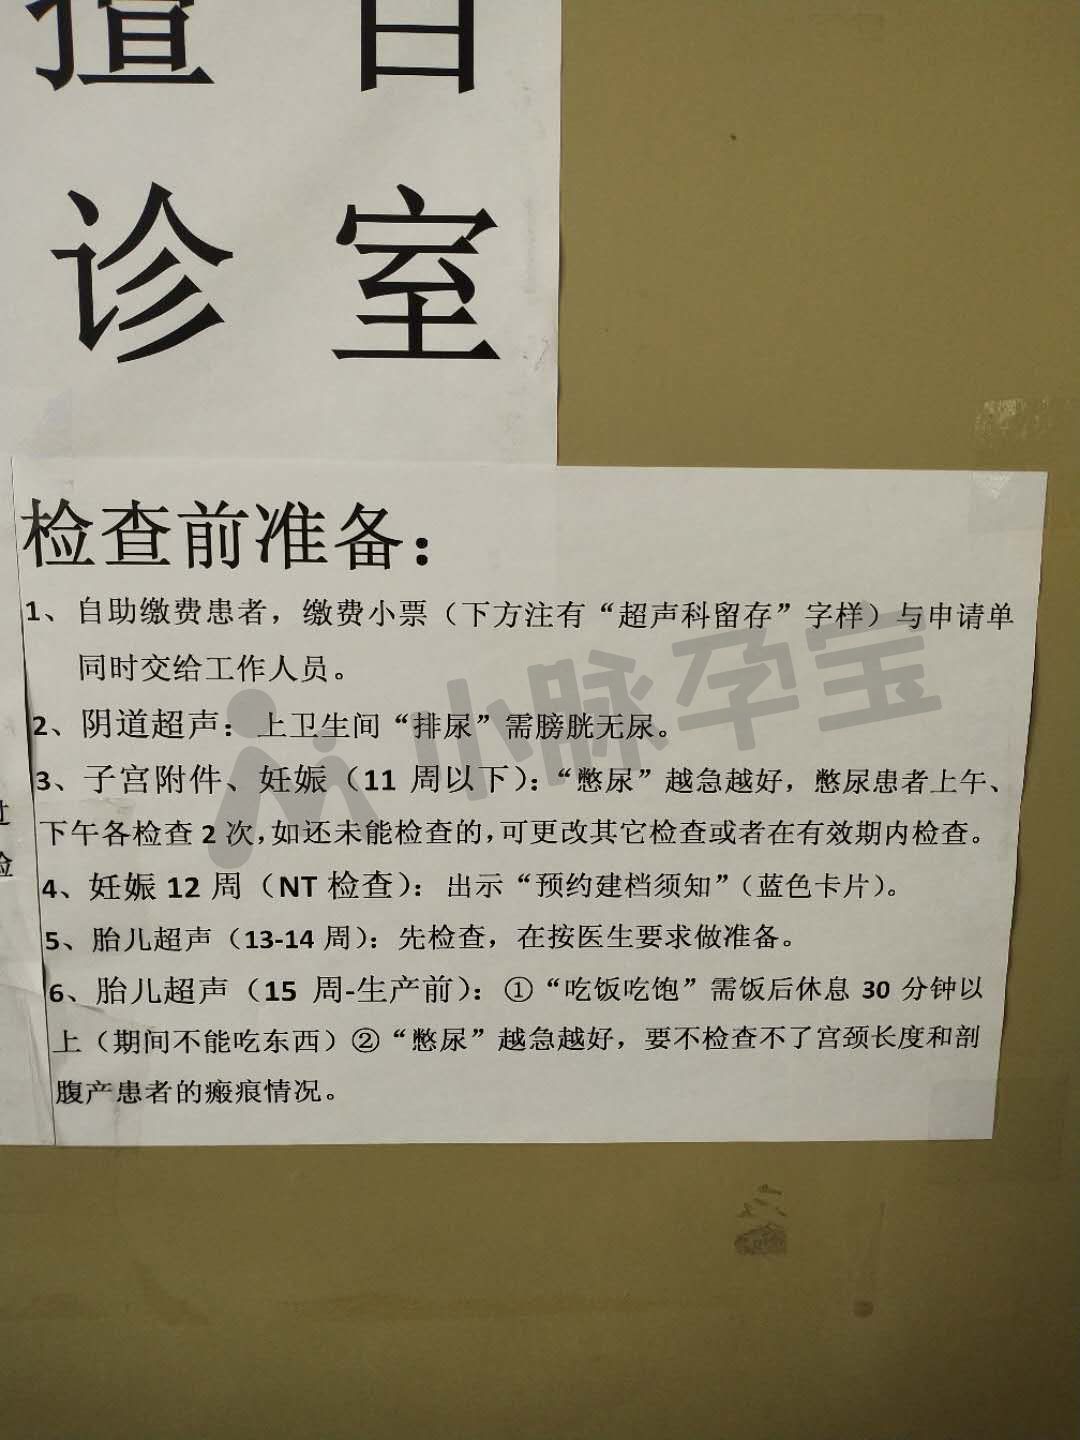 擅自
诊室
检查前准备：
1、自助缴费患者，缴费小票（下方注有“超声科留存”字样）与申请单
同时交给工作人员。
2、阴道超声：上卫生间“排尿”需膀胱无尿。
3、子宫附件、妊娠（11 周以下）：“憋尿”越急越好，憋尿患者上午、
下午各检查 2 次，如还未能检查的，可更改其它检查或者在有效期内检查。
4、妊娠 12 周（NT 检查）：出示“预约建档须知”（蓝色卡片）。
5、胎儿超声（13-14 周）：先检查，在按医生要求做准备。
6、胎儿超声（15 周-生产前）：①“吃饭吃饱”需饭后休息 30 分钟以
上（期间不能吃东西）②“憋尿”越急越好，要不检查不了宫颈长度和剖
腹产患者的瘢痕情况。
小脉孕宝